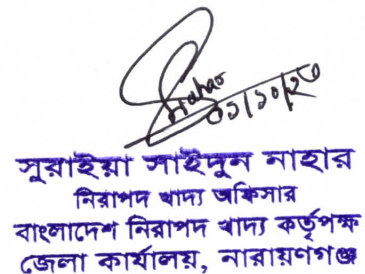 Nahar
০১/১০/২০
সুরাইয়া সাইদুন নাহার
নিরাপদ খাদ্য অফিসার
বাংলাদেশ নিরাপদ খাদ্য কর্তৃপক্ষ
জেলা কার্যালয়, নারায়ণগঞ্জ